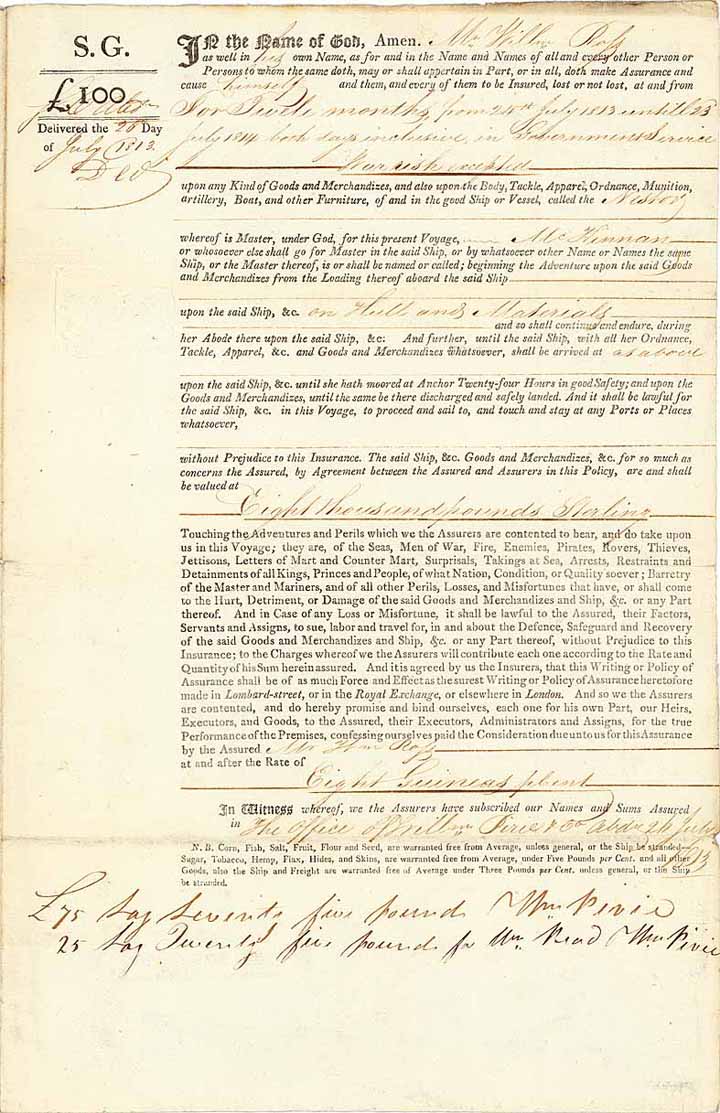 S. G.
£100
Delivered the 26 Day
of July 1813.
In the Name of God, Amen. Mr Willm Ross
as well in his own Name, as for and in the Name and Names of all and every other Person or
Persons to whom the same doth, may or shall appertain in Part, or in all, doth make Assurance and
cause himself and them, and every of them to be Insured, lost or not lost, at and from
For Twelve months, from 24th July 1813 untill 23
July 1814 both days inclusive, in Government Service
War risk excepted
upon any Kind of Goods and Merchandizes, and also upon the Body, Tackle, Apparel, Ordnance, Munition,
artillery, Boat, and other Furniture, of and in the good Ship or Vessel, called the Nestor
whereof is Master, under God, for this present Voyage, McKinnan
or whosoever else shall go for Master in the said Ship, or by whatsoever other Name or Names the same
Ship, or the Master thereof, is or shall be named or called; beginning the Adventure upon the said Goods
and Merchandizes from the Loading thereof aboard the said Ship
upon the said Ship, &c. on Hull and Materials
and so shall continue and endure, during
her Abode there upon the said Ship, &c: And further, until the said Ship, with all her Ordnance,
Tackle, Apparel, &c. and Goods and Merchandizes whatsoever, shall be arrived at as above
upon the said Ship, &c. until she hath moored at Anchor Twenty-four Hours in good Safety; and upon the
Goods and Merchandizes, until the same be there discharged and safely landed. And it shall be lawful for
the said Ship, &c. in this Voyage, to proceed and sail to, and touch and stay at any Ports or Places
whatsoever,
without Prejudice to this Insurance. The said Ship, &c. Goods and Merchandizes, &c. for so much as
concerns the Assured, by Agreement between the Assured and Assurers in this Policy, are and shall
be valued at
Eight thousand pounds Sterling
Touching the Adventures and Perils which we the Assurers are contented to bear, and do take upon
us in this Voyage; they are, of the Seas, Men of War, Fire, Enemies, Pirates, Rovers, Thieves,
Jettisons, Letters of Mart and Counter Mart, Surprisals, Takings at Sea, Arrests, Restraints and
Detainments of all Kings, Princes and People, of what Nation, Condition, or Quality soever; Barretry
of the Master and Mariners, and of all other Perils, Losses, and Misfortunes that have, or shall come
to the Hurt, Detriment, or Damage of the said Goods and Merchandizes and Ship, &c. or any Part
thereof. And in Case of any Loss or Misfortune, it shall be lawful to the Assured, their Factors,
Servants and Assigns, to sue, labor and travel for, in and about the Defence, Safeguard and Recovery
of the said Goods and Merchandizes and Ship, &c. or any Part thereof, without Prejudice to this
Insurance; to the Charges whereof we the Assurers will contribute each one according to the Rate and
Quantity of his Sum herein assured. And it is agreed by us the Insurers, that this Writing or Policy of
Assurance shall be of as much Force and Effect as the surest Writing or Policy of Assurance heretofore
made in Lombard-street, or in the Royal Exchange, or elsewhere in London. And so we the Assurers
are contented, and do hereby promise and bind ourselves, each one for his own Part, our Heirs,
Executors, and Goods, to the Assured, their Executors, Administrators and Assigns, for the true
Performance of the Premises, confessing ourselves paid the Consideration due unto us for this Assurance
by the Assured Mr Wm Ross
at and after the Rate of
Eight Guineas pCent
In Witness whereof, we the Assurers have subscribed our Names and Sums Assured
in The Office of Willm Pirie & Co Abdn 26 July
1813
N. B. Corn, Fish, Salt, Fruit, Flour and Seed, are warranted free from Average, unless general, or the Ship be stranded—
Sugar, Tobacco, Hemp, Flax, Hides, and Skins, are warranted free from Average, under Five Pounds per Cent. and all other
Goods, also the Ship and Freight are warranted free of Average under Three Pounds per Cent. unless general, or the Ship
be stranded.
£75 Say Seventy five pound Wm Pirie
25 Say Twenty five pound for Wm Read Wm Pirie